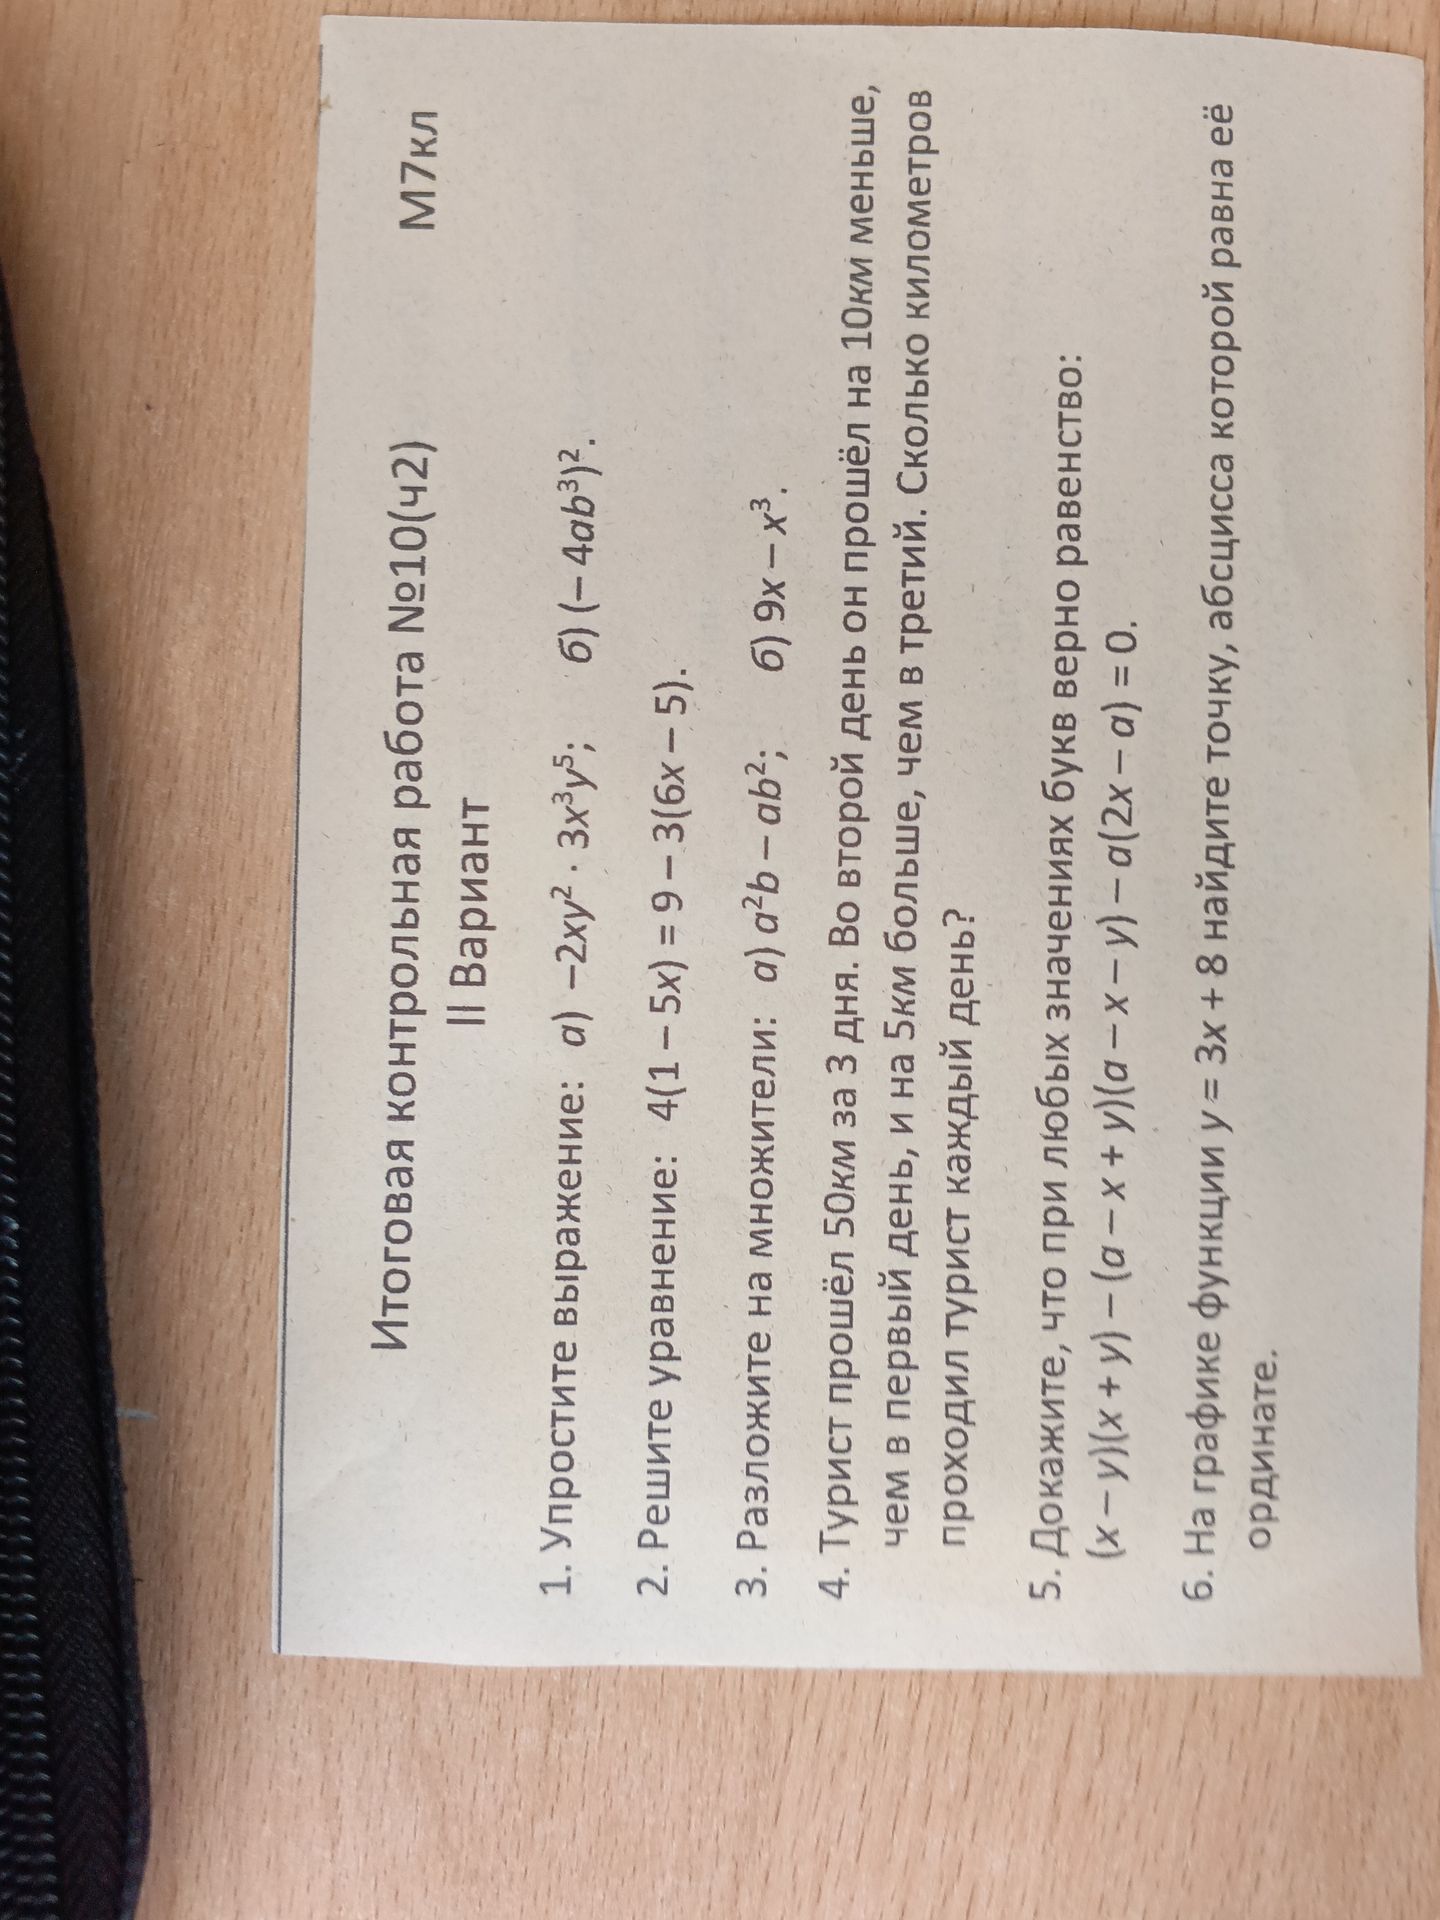 Итоговая контрольная работа №10(ч2) М7кл
II Вариант
1. Упростите выражение: а) −2xy²· 3x³y⁵; б) (− 4ab³)².
2. Решите уравнение: 4(1 − 5x) = 9 − 3(6x − 5).
3. Разложите на множители: а) a²b − ab²; б) 9x − x³.
4. Турист прошёл 50км за 3 дня. Во второй день он прошёл на 10км меньше,
чем в первый день, и на 5км больше, чем в третий. Сколько километров
проходил турист каждый день?
5. Докажите, что при любых значениях букв верно равенство:
(x − y)(x + y) − (a − x + y)(a − x − y) − a(2x − a) = 0.
6. На графике функции y = 3x + 8 найдите точку, абсцисса которой равна её
ординате.